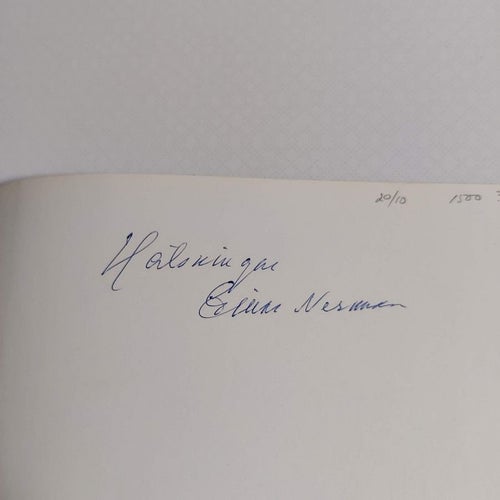 20/10 1500
Hälsningar
Einar Nerman